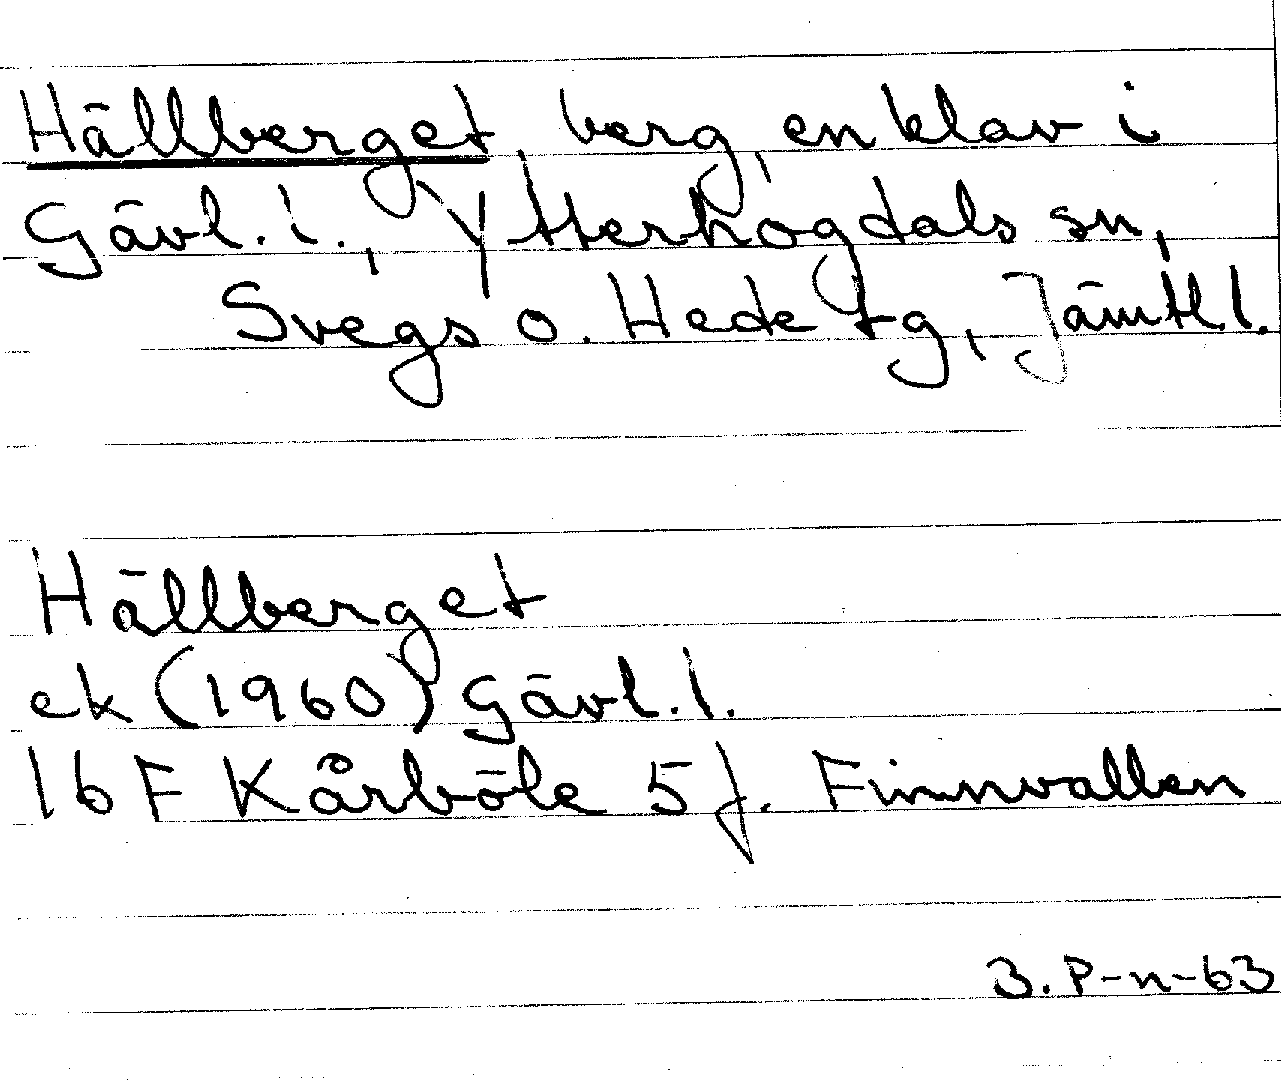 Hällberget, berg, enklav i
Gävl. l., Ytterhogdals sn,
Svegs o. Hede tg, Jämtl. l.
Hällberget
ek (1960) Gävl. l.
16F Kårböle 5f. Finnvallen
3.P-n-63